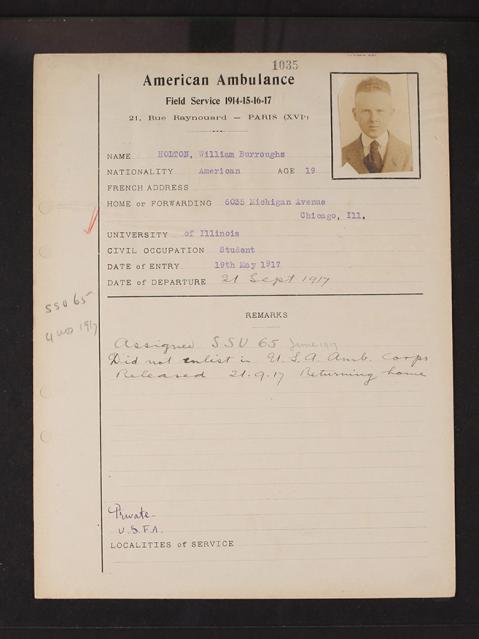 1035
American Ambulance
Field Service 1914-15-16-17
21, Rue Raynouard — PARIS (XVIe)
NAME HOLTON, William Burroughs
NATIONALITY American AGE 19
FRENCH ADDRESS
HOME or FORWARDING 5035 Michigan Avenue
Chicago, Ill.
UNIVERSITY of Illinois
CIVIL OCCUPATION Student
DATE of ENTRY 19th May 1917
DATE of DEPARTURE 21 Sept 1917
SSU 65
4 1917
REMARKS
Assigned SSU 65 June 1917
Did not enlist in U.S.A. Amb. Corps
Released 21.9.17 Returning home
Private
U.S.F.A.
LOCALITIES of SERVICE